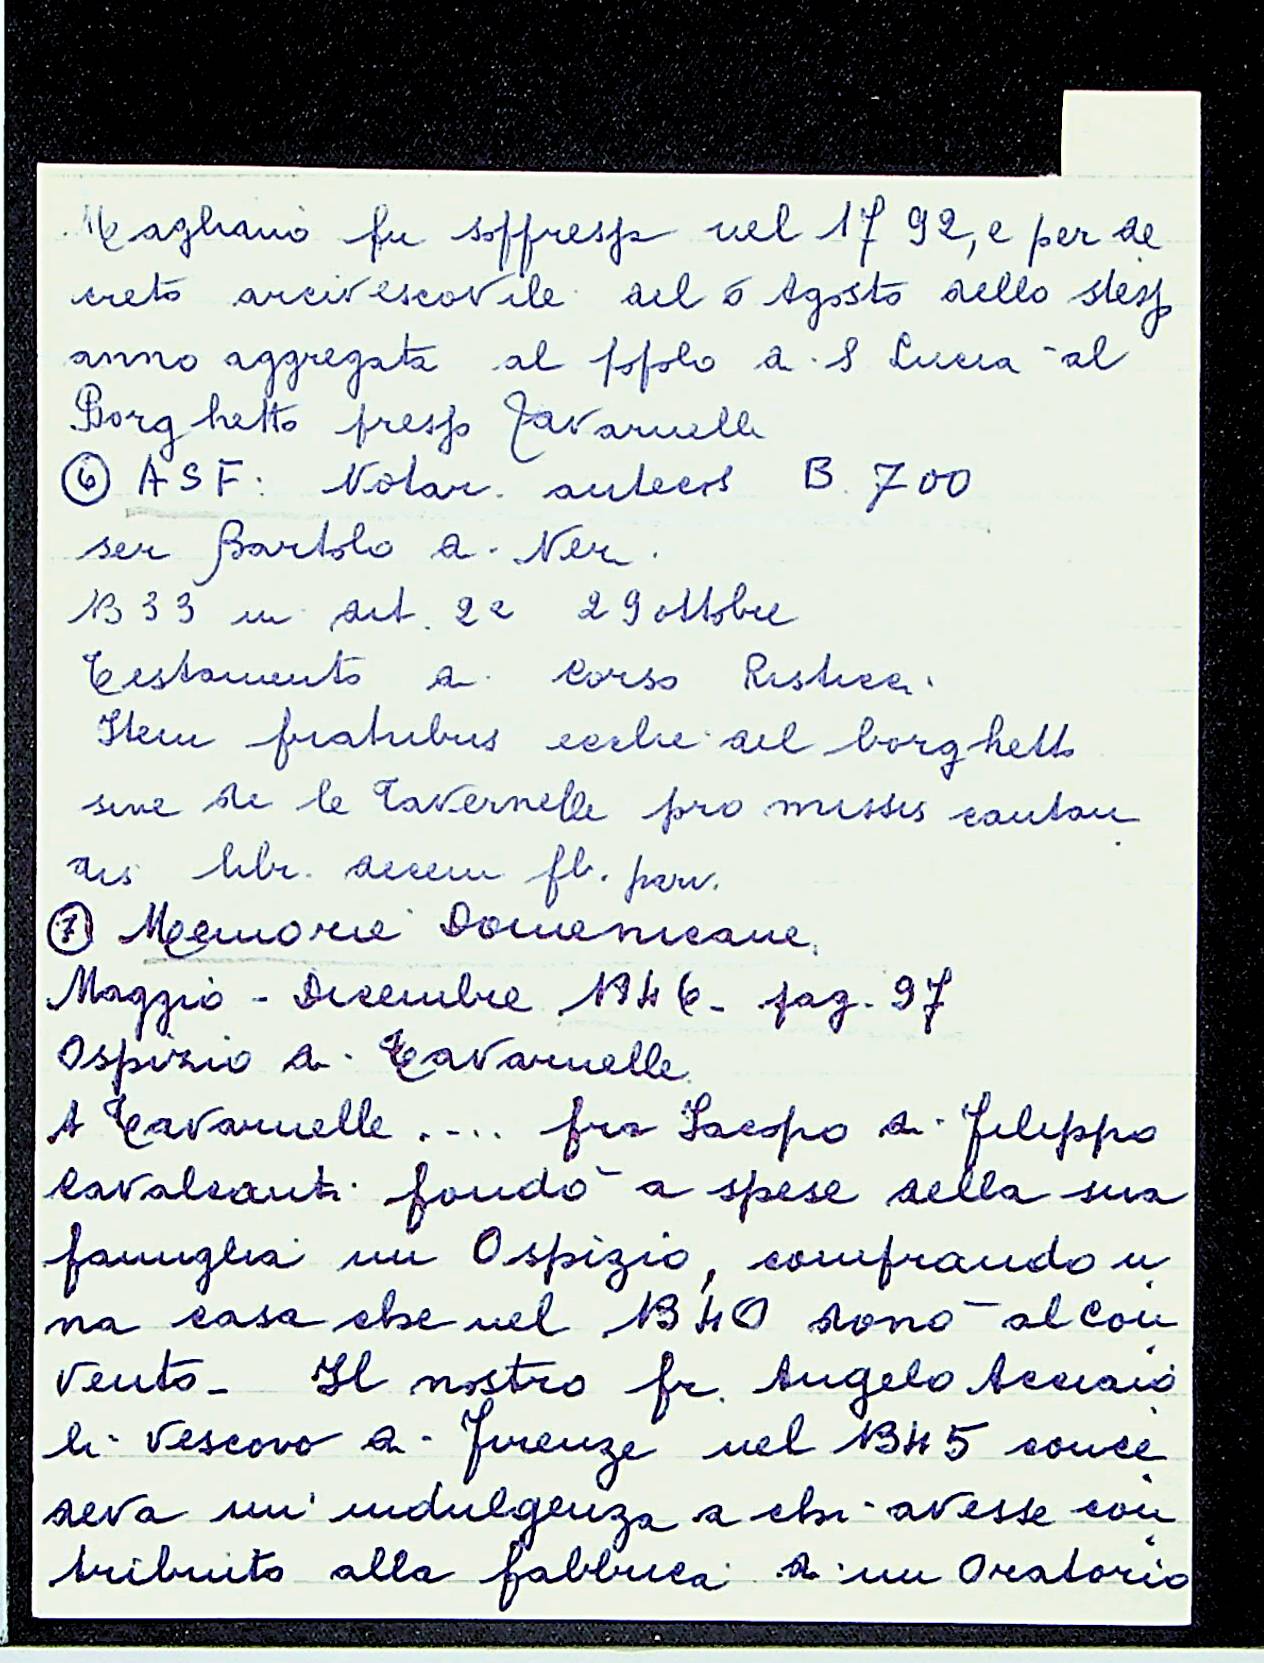 Magliano fu soppresso nel 1792, e per de
creto arcivescovile del 6 Agosto dello stesso
anno aggregata al popolo di S Lucia al
Borghetto presso Tavarnelle
⑥ ASF: Notar. antecos B. 700
ser Bartolo di Neri.
1333 in dict. 2a 29 ottobre
Testamento di Corso
Item fratribus eccle del borghetto
sive de le Tavernelle pro missis cantan
dis libr. decem fl. parv.
⑦ Memorie Domenicane.
Maggio - Dicembre 1946 - pag. 97
Ospizio di Tavarnelle
A Tavarnelle .... fra Iacopo di Filippo
Cavalcanti fondò a spese della sua
famiglia un Ospizio, comprando u
na casa che nel 1340 donò al Con
vento - Il nostro fr. Angelo Acciaio
li vescovo di Firenze nel 1345 conce
deva un' indulgenza a chi avesse con
tribuito alla fabbrica di un Oratorio